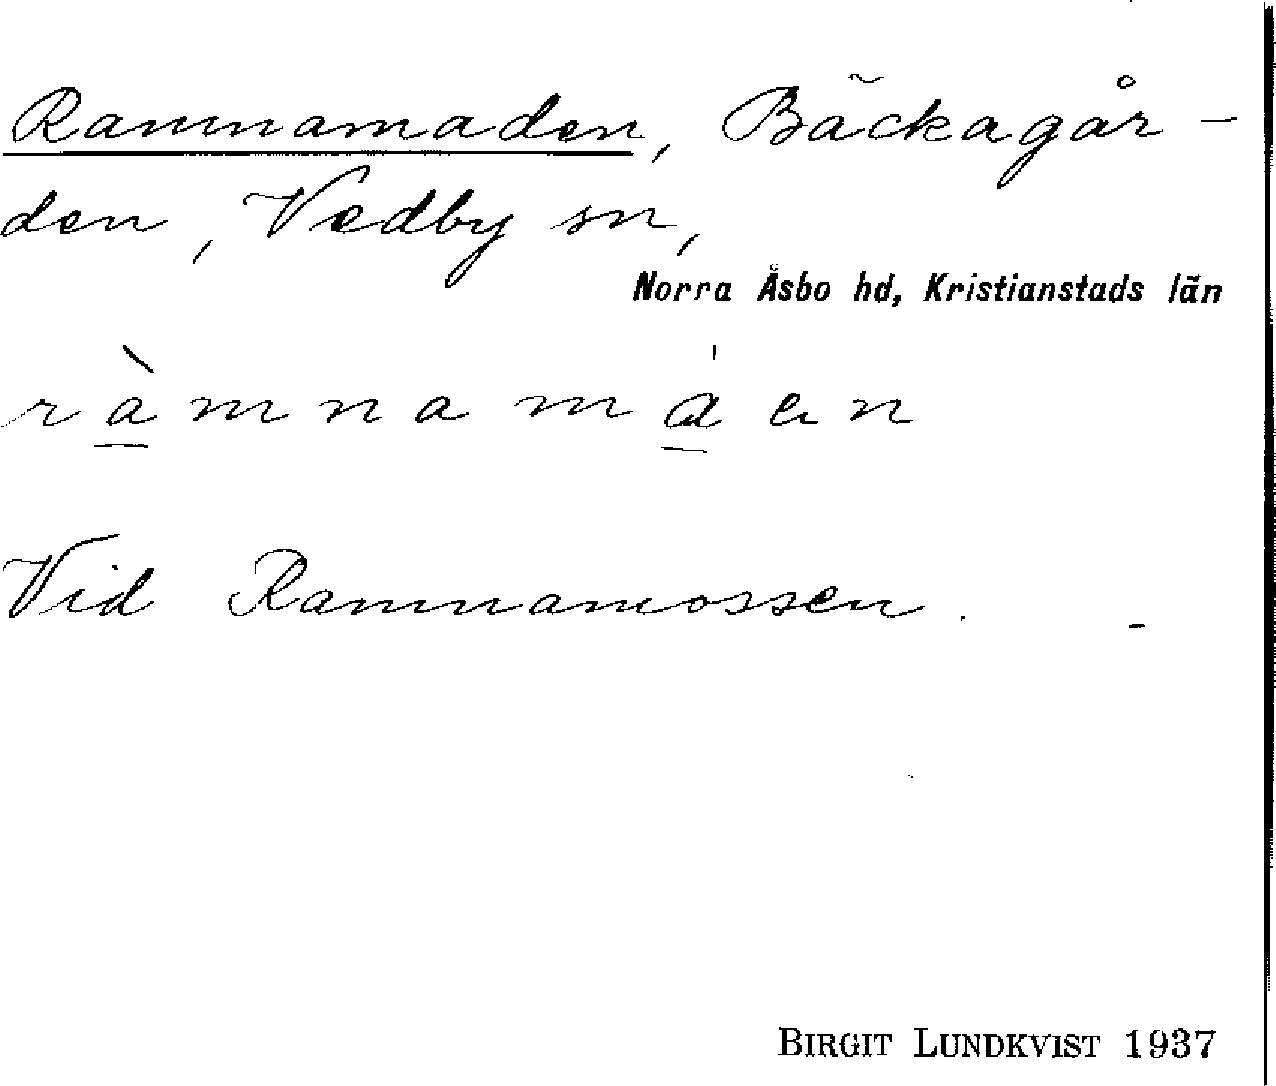 Ramnamaden, Bäckagår-
den, Vedby sn,
Norra Åsbo hd, Kristianstads län
ràmnamáen
Vid Ramnamossen.
BIRGIT LUNDKVIST 1937